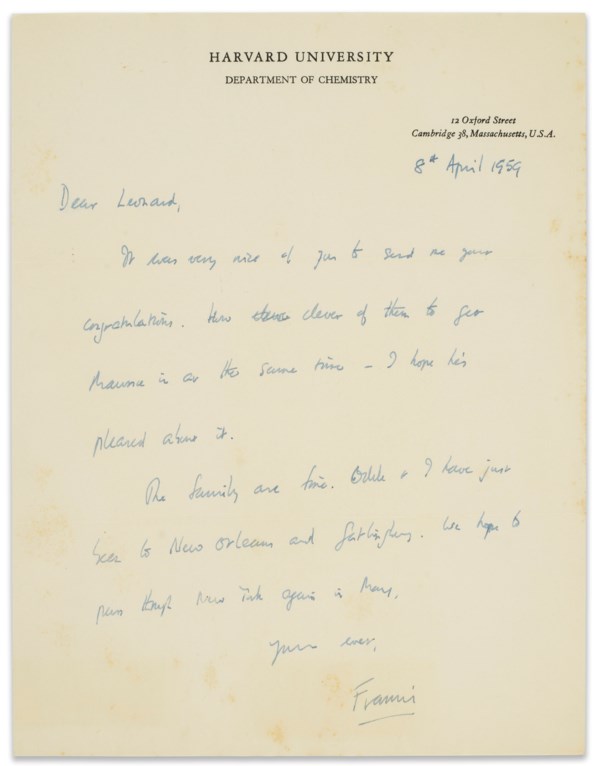 HARVARD UNIVERSITY
DEPARTMENT OF CHEMISTRY
12 Oxford Street
Cambridge 38, Massachusetts, U.S.A.
8th April 1959
Dear Leonard,
It was very nice of you to send me your
congratulations. How clever of them to get
Maurice in at the same time – I hope he's
pleased about it.
The family are fine. Odile & I have just
been to New Orleans and Gatlinburg. We hope to
pass through New York again in May.
Yours ever,
Francis